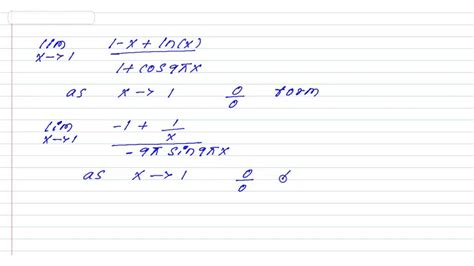 lim x->1 1-x+ln(x) / 1+cos9πx
as x->1 0/0 form
lim x->1 -1+1/x / -9π sin9πx
as x->1 0/0